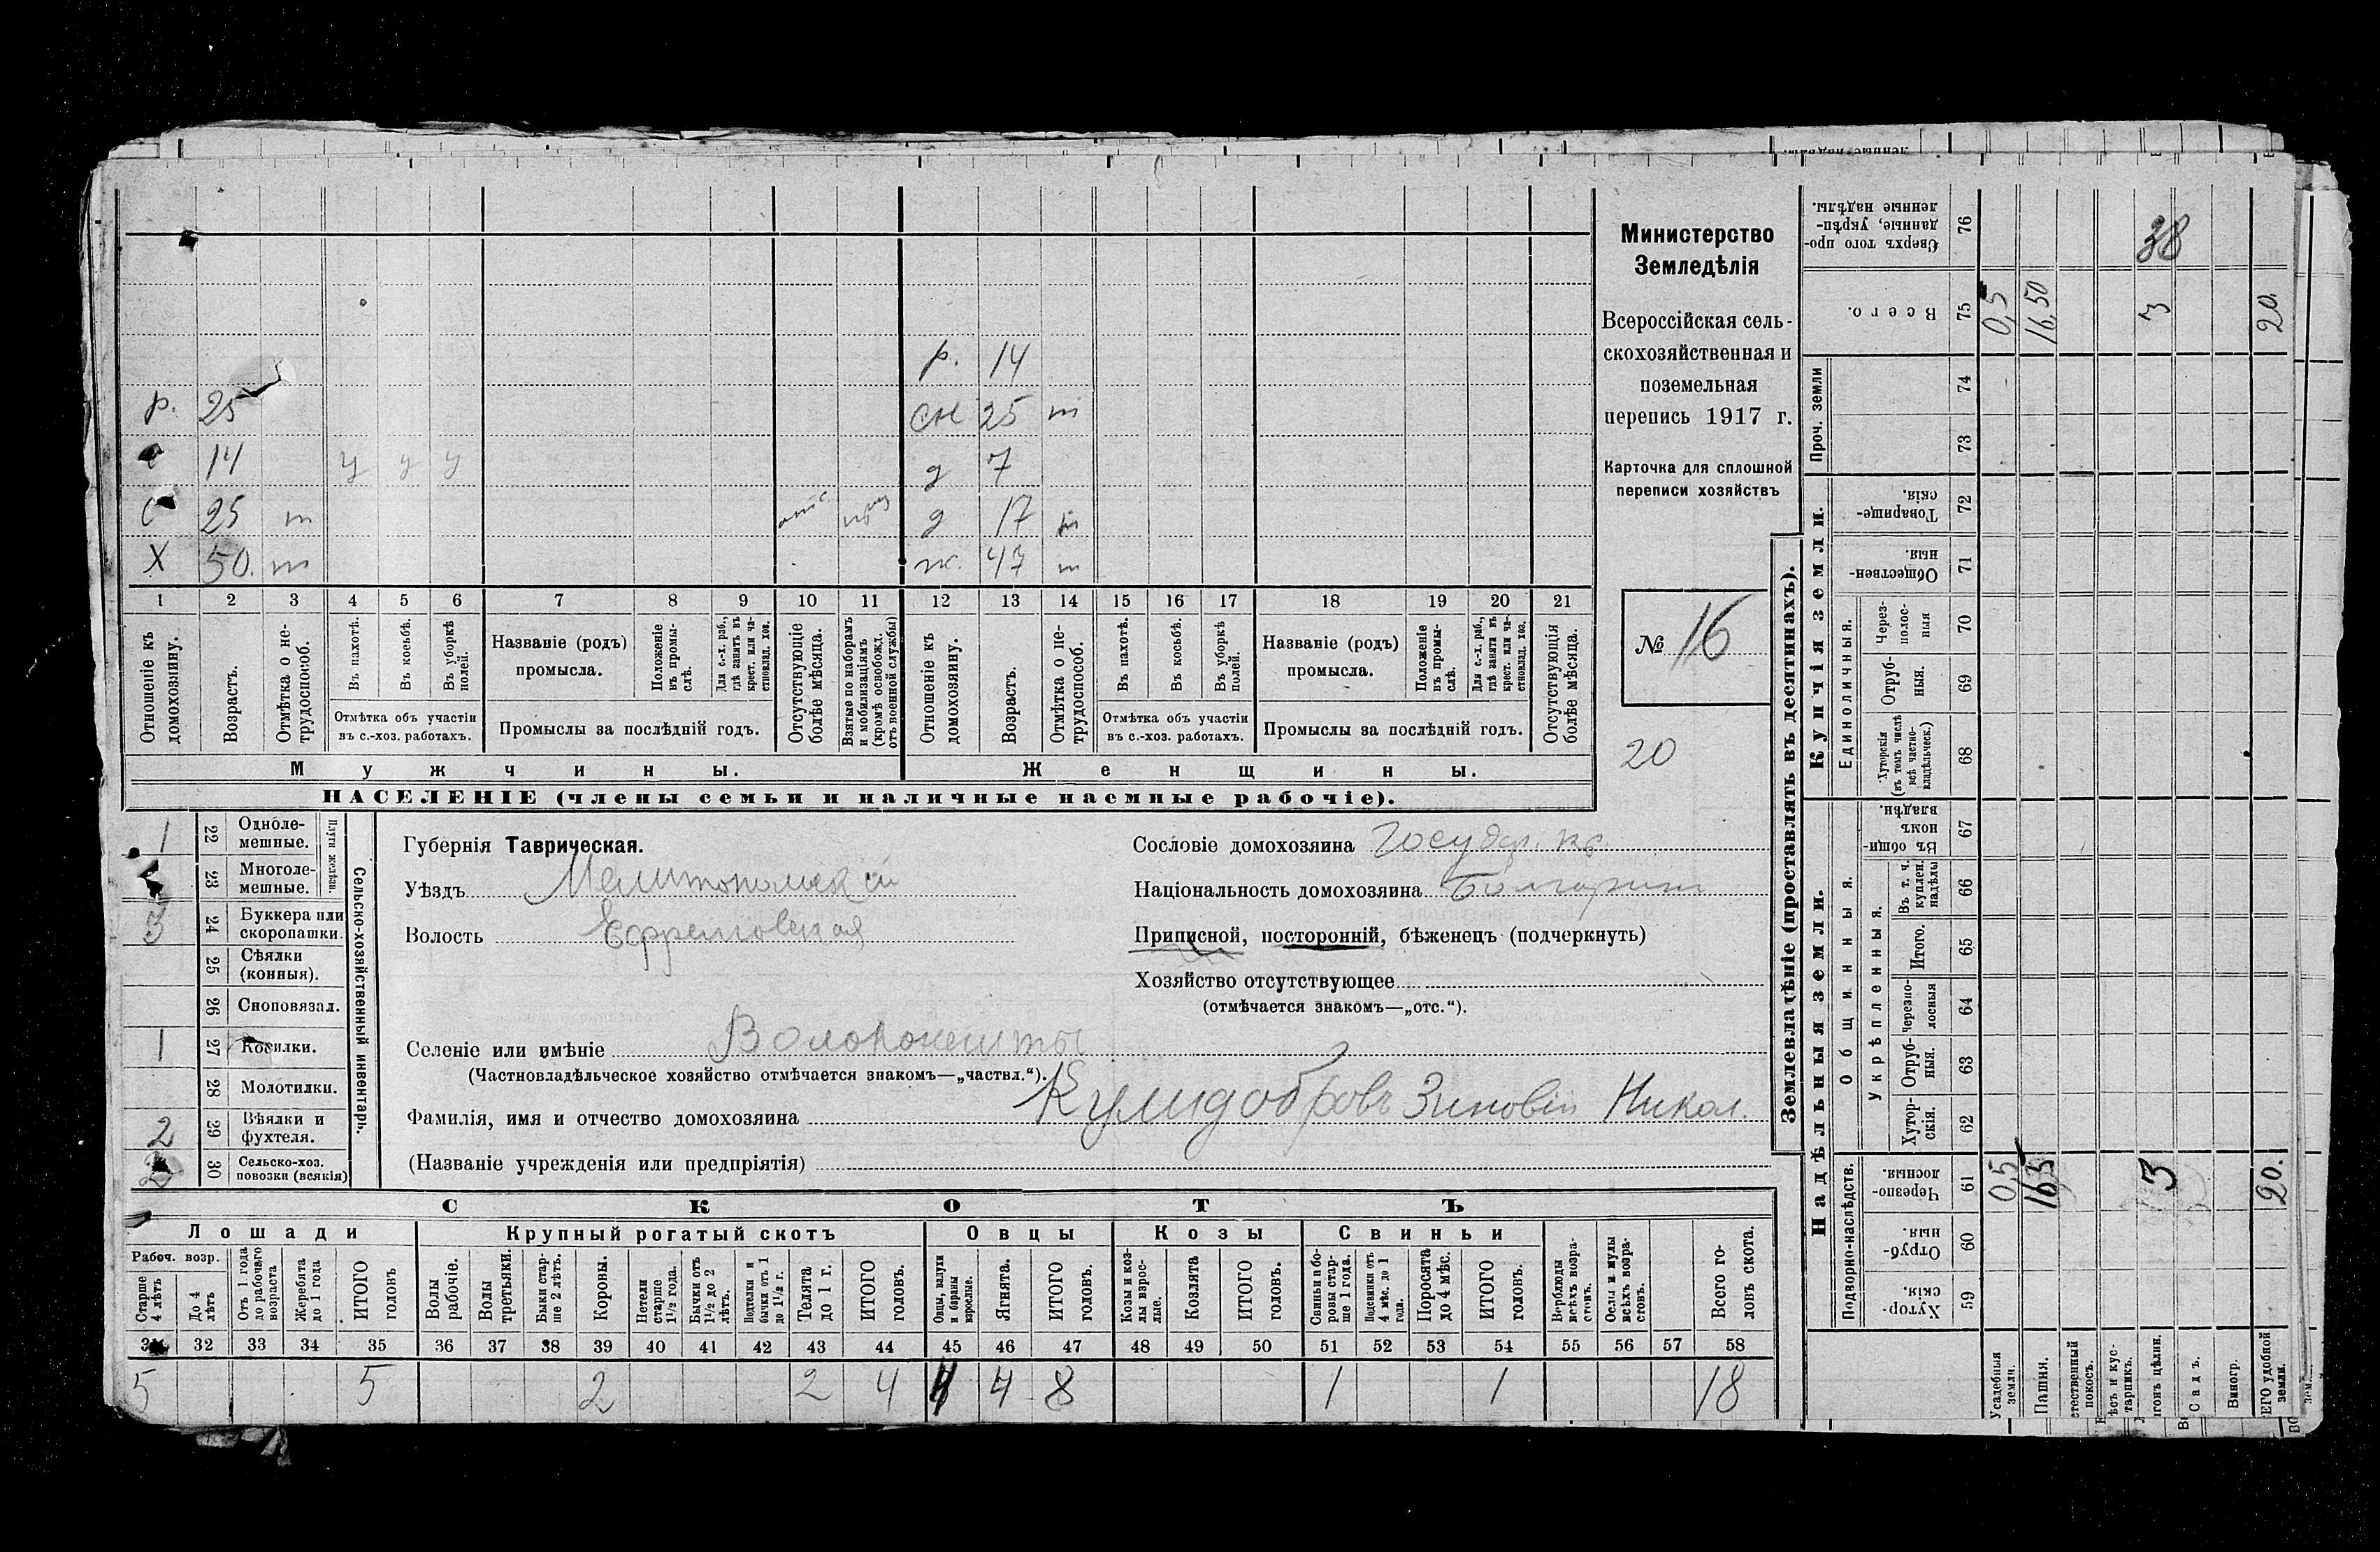 р. 14
р. 25 сн 25 т
с 14 у у у д 7
с 25 т отс д 17 т
Х 50. т ж. 47 т
1 2 3 4 5 6 7 8 9 10 11 12 13 14 15 16 17 18 19 20 21
Отношеніе къ домохозяину.
Возрастъ.
Отмѣтка о не-трудоспособ.
Въ пахотѣ.
Въ косьбѣ.
Въ уборкѣ полей.
Отмѣтка объ участіи
въ с.-хоз. работахъ.
Названіе (родъ)
промысла.
Положеніе въ промы-слѣ.
Для с.-х. раб., гдѣ занятъ въ крест. или ча-стновлад. хоз.
Промыслы за послѣдній годъ.
Отсутствующіе болѣе мѣсяца.
Взятые по наборамъ и мобилизаціямъ (кромѣ освобожд. отъ военной службы)
Отношеніе къ домохозяину.
Возрастъ.
Отмѣтка о не-трудоспособ.
Въ пахотѣ.
Въ косьбѣ.
Въ уборкѣ полей.
Отмѣтка объ участіи
въ с.-хоз. работахъ.
Названіе (родъ)
промысла.
Положеніе въ промы-слѣ.
Для с.-х. раб., гдѣ занята въ крест. или ча-стновлад. хоз.
Промыслы за послѣдній годъ.
Отсутствующія болѣе мѣсяца.
Мужчины.
Женщины.
НАСЕЛЕНІЕ (члены семьи и наличные наемные рабочіе).
Министерство
Земледѣлія
Всероссійская сель-
скохозяйственная и
поземельная
перепись 1917 г.
Карточка для сплошной
переписи хозяйствъ
№ 16
20
1 22 Одноле-мешные.
23 Многоле-мешные.
Плуги желѣзн.
3 24 Буккера или скоропашки.
25 Сѣялки (конныя).
26 Сноповязал.
1 27 Косилки.
28 Молотилки.
2 29 Вѣялки и фухтеля.
2 30 Сельско-хоз. повозки (всякія)
Сельско-хозяйственный инвентарь.
Губернія Таврическая.
Уѣздъ Мелитопольскій
Волость Ефремовская
Селеніе или имѣніе
(Частновладѣльческое хозяйство отмѣчается знакомъ—„частвл.“).
Фамилія, имя и отчество домохозяина Зиновій Никол.
(Названіе учрежденія или предпріятія)
Сословіе домохозяина Государ. кр.
Національность домохозяина Болгаринъ
Приписной, посторонній, бѣженецъ (подчеркнуть)
Хозяйство отсутствующее
(отмѣчается знакомъ—„отс.“).
СКОТЪ
Лошади Крупный рогатый скотъ Овцы Козы Свиньи
Рабоч. возр.
Старше 4 лѣтъ
До 4 лѣтъ
Отъ 1 года до рабочаго возраста
Жеребята до 1 года
ИТОГО головъ
Волы рабочіе.
Волы третьяки.
Быки стар-ше 2 лѣтъ.
Коровы.
Нетели старше 1½ года.
Бычки отъ 1½ до 2 лѣтъ.
Подтелки и бычки отъ 1 до 1½ г.
Телята до 1 г.
ИТОГО головъ.
Овцы, валухи и бараны взрослые.
Ягнята.
ИТОГО головъ.
Козы и коз-лы взрос-лые.
Козлята
ИТОГО головъ.
Свиньи и бо-ровы стар-ше 1 года.
Подсвинки отъ 4 мѣс. до 1 года.
Поросята до 4 мѣс.
ИТОГО головъ.
Верблюды всѣхъ возра-стовъ.
Ослы и мулы всѣхъ возра-стовъ.
Всего го-ловъ скота.
31 32 33 34 35 36 37 38 39 40 41 42 43 44 45 46 47 48 49 50 51 52 53 54 55 56 57 58
5 5 2 2 4 4 4 8 1 1 18
Землевладѣніе (проставлять въ десятинахъ).
Надѣльныя земли.
Купчія земли.
Проч. земли
Подворно-наслѣдств.
Общинныя.
Укрѣпленныя.
Единоличныя.
Хутор-скія. 59
Отруб-ныя. 60
Черезпо-лосныя. 61
Хутор-скія. 62
Отруб-ныя. 63
Черезпо-лосныя 64
Итого. 65
Въ т. ч. куплен. надѣлы 66
Въ общин-номъ владѣн. 67
Хуторскія (въ томъ числѣ всѣ частно-владѣльческ.) 68
Отруб-ныя. 69
Через-полос-ныя 70
Обществен-ныя. 71
Товарище-скія. 72
73
74
Всего. 75
Сверхъ того про-данные, укрѣп-ленные надѣлы. 76
Усадебныя земли. 0,5 0,5
Пашня. 16,5 16,50
покосъ.
тарникъ.
3 3 38
Садъ.
Виногр.
удобной земли. 20. 20.